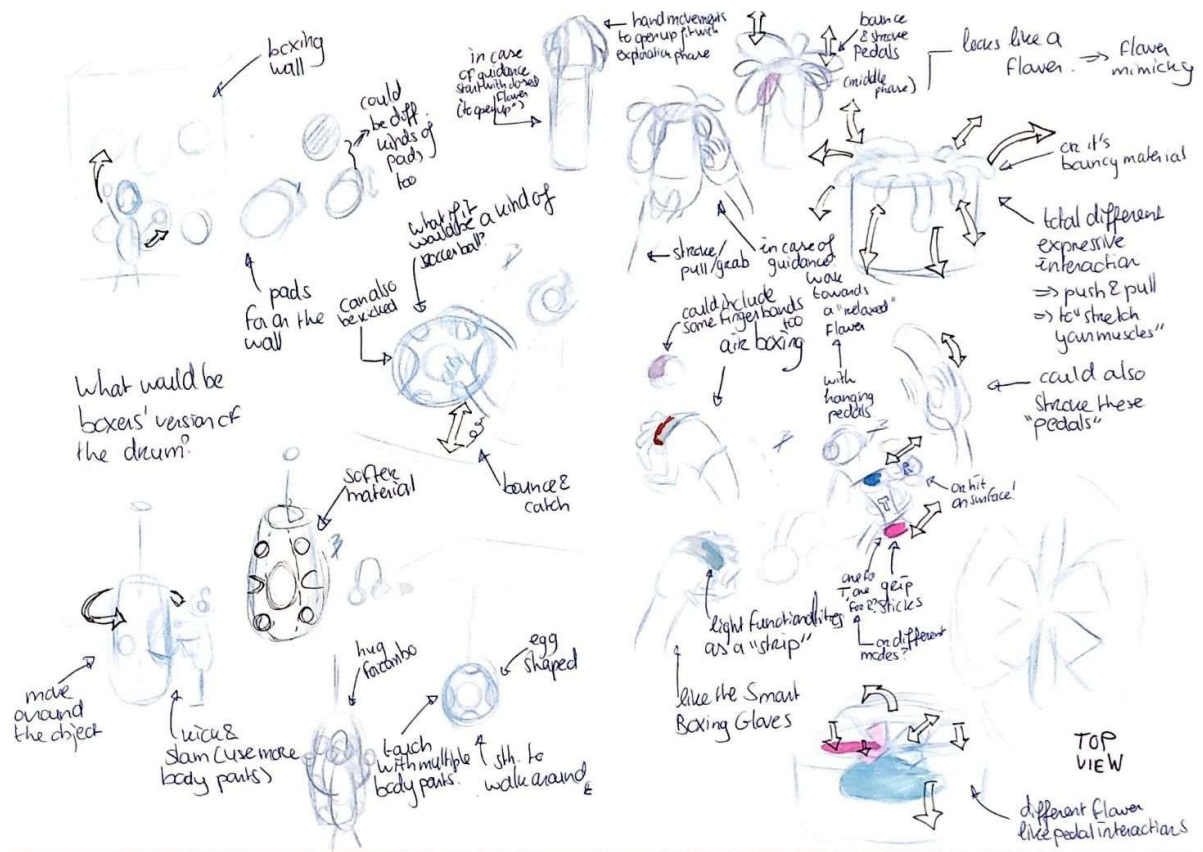 boxing
wall
could
be diff.
kinds of
pads
too
pads
for on the
wall
What if it
would be a kind of
soccerball?
can also
be kicked
bounce &
catch
What would be
boxers' version of
the drum?
softer
material
move
around
the object
kick &
slam (use more
body parts)
hug
for combo
touch
with multiple
body parts.
egg
shaped
sth. to
walk around
in case
of guidance
start with closed
flower
(to "open up")
hand movements
to open up fit with
exploration phase
bounce
& stroke
pedals
(middle
phase)
looks like a
flower.
⇒ flower
mimicky
or it's
bouncy material
total different
expressive
interaction
⇒ push & pull
⇒ to "stretch
your muscles"
stroke
pull/grab
in case of
guidance
work
towards
a "relaxed"
flower
with
hanging
pedals
could include
some finger bands
too
air boxing
could also
stroke these
"pedals"
or hit
on surface!
T
one for
T one
for 2.
grip
sticks
or different
modes?
light functionalities
as a "strip"
like the Smart
Boxing Gloves
TOP
VIEW
different flower
like pedal interactions